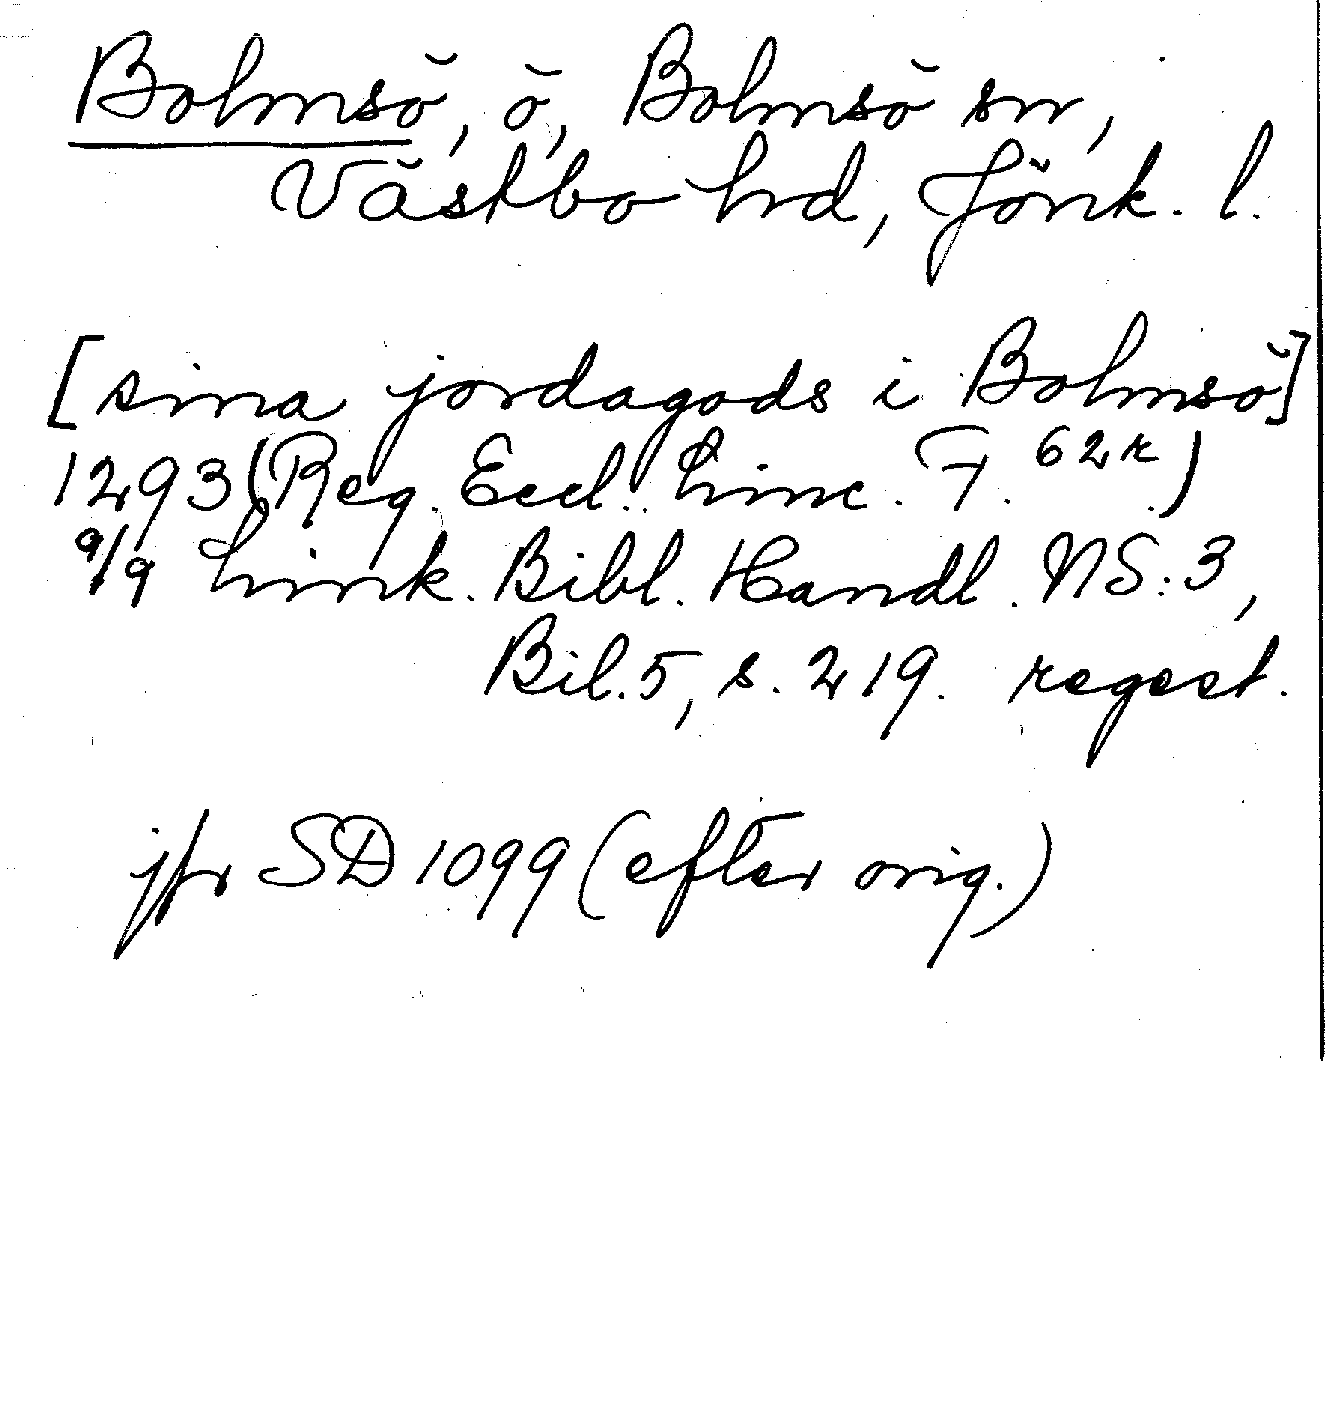 Bolmsö, ö, Bolmsö sn,
Västbo hd, Jönk. l.
[sina jordagods i Bolmsö]
1293 (Reg. Eccl. Linc. F. 62 r.)
9/9 Link. Bibl. Handl. NS:3,
Bil. 5, s. 219. regest.
jfr SD 1099 (efter orig.)